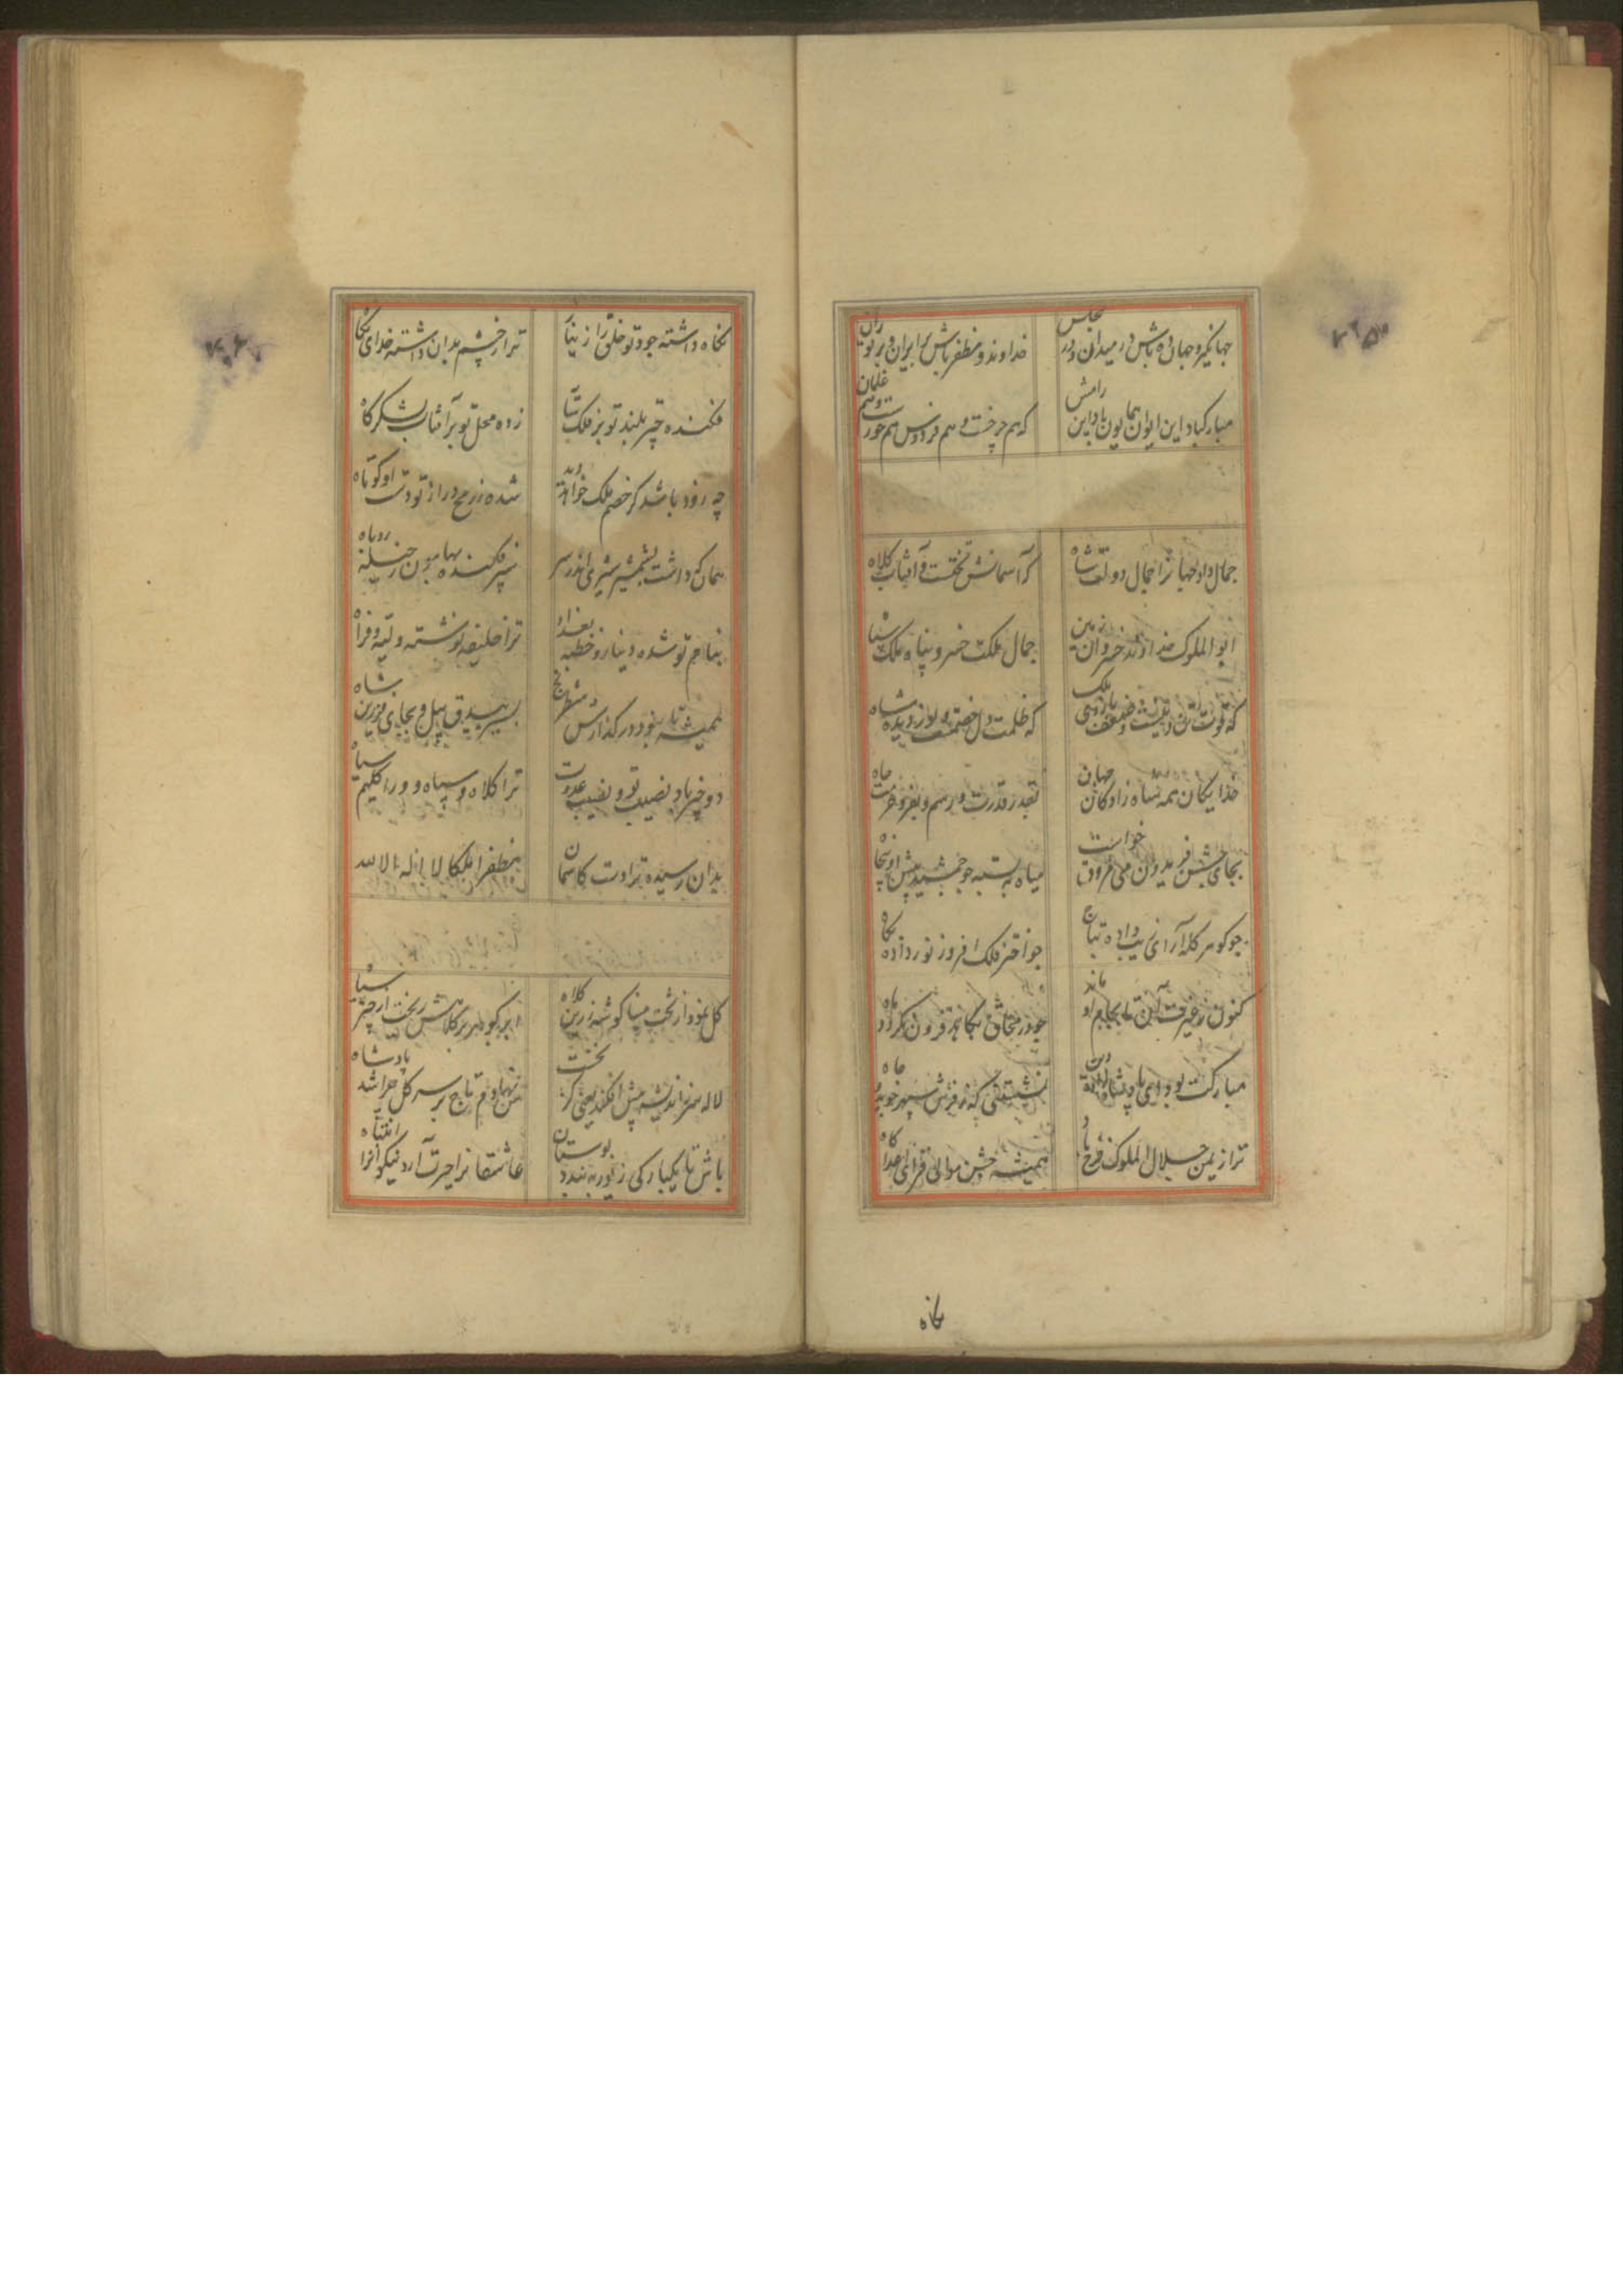 جهانگیر و جهان ده باش در میدان و در مجلس
خداوند و مظفر باش بر ایران و بر توران
مبارکباد این ایوان همایون باد این رامش
که هم چرخست و هم فردوس هم حورست و هم غلمان
جمال داد جهانرا جمال دولت شاه
که آسمانش تختست و آفتاب کلاه
ابوالملوک خداوند خسروان زمین
جمال ملکت خسرو پناه ملک
که قوت تن و بازوی ملک
که ظلمت دل خصمست و نور دیده شاه
خدایگان همه شاه زادگان جهان
بقدر و قدرت و رسم و بفر و حرمت و جاه
بجای جشن فریدون می فرود خواست
میان ببسته چو جمشید پیش او پنجاه
چو گوهر کله آرای داده بتاج
چو اختر فلک افروز نور داده
کنون ز غیرت آن تا بجام او ماند
چو در محاق بکاهد فزون نگردد ماه
مبارکت بود ای پادشاه دین
نشستنی که ز فرش سپهر جوید جاه
ترا ز یمن جلال الملوک فرخ باد
همیشه جشن موالی فزای اعدا کاه
نگاه
نگاه داشته جود تو خلق را ز نیاز
ترا ز چشم بدان داشته خدای نگاه
فکنده چتر بلند تو بر فلک
زده محل تو بر آفتاب لشکرگاه
چه زود باشد کز خصم ملک خواهد دید
شده ز رمح دراز تو دست او کوتاه
همان که داشت بشمشیر شیری اندر سر
سپر فکنده بهامون ز حیله روباه
بنام تو شده دینار و خطبه بغداد
ترا خلیفه نوشته
همیشه تا نبود در گذارش شطرنج
بسیر بیدق پیل و بجای فرزین شاه
دو چیز باد نصیب تو و نصیب عدوت
ترا کلاه و سپاه و ورا گلیم سیاه
بدان رسیده ترا دست کاسمان
مظفرا ملکا لا اله الا الله
گل نمود از تخت مینا گوشه زرین کلاه
ابر گوهر بر کلاهش ریخت از چتر سیاه
لاله سر ز اندیشه پیش افکند یعنی کز تخت
من نهادم تاج بر سر گل چرا شد پادشاه
باش تا یکبارگی زیور ببندد بوستان
عاشقانرا حیرت آرد نیکوانرا انتباه